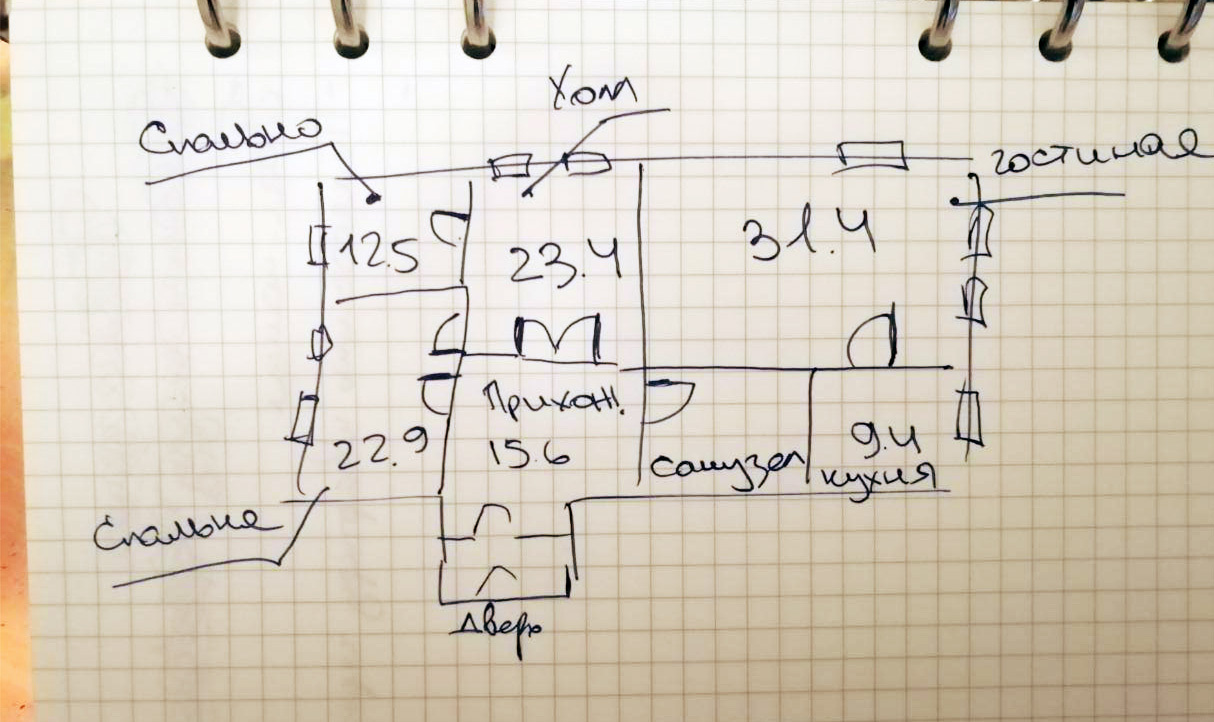 Холл
Спальня
гостиная
12.5
23.4
31.4
Прихож.
22.9
15.6
санузел
9.4
кухня
Спальня
Дверь